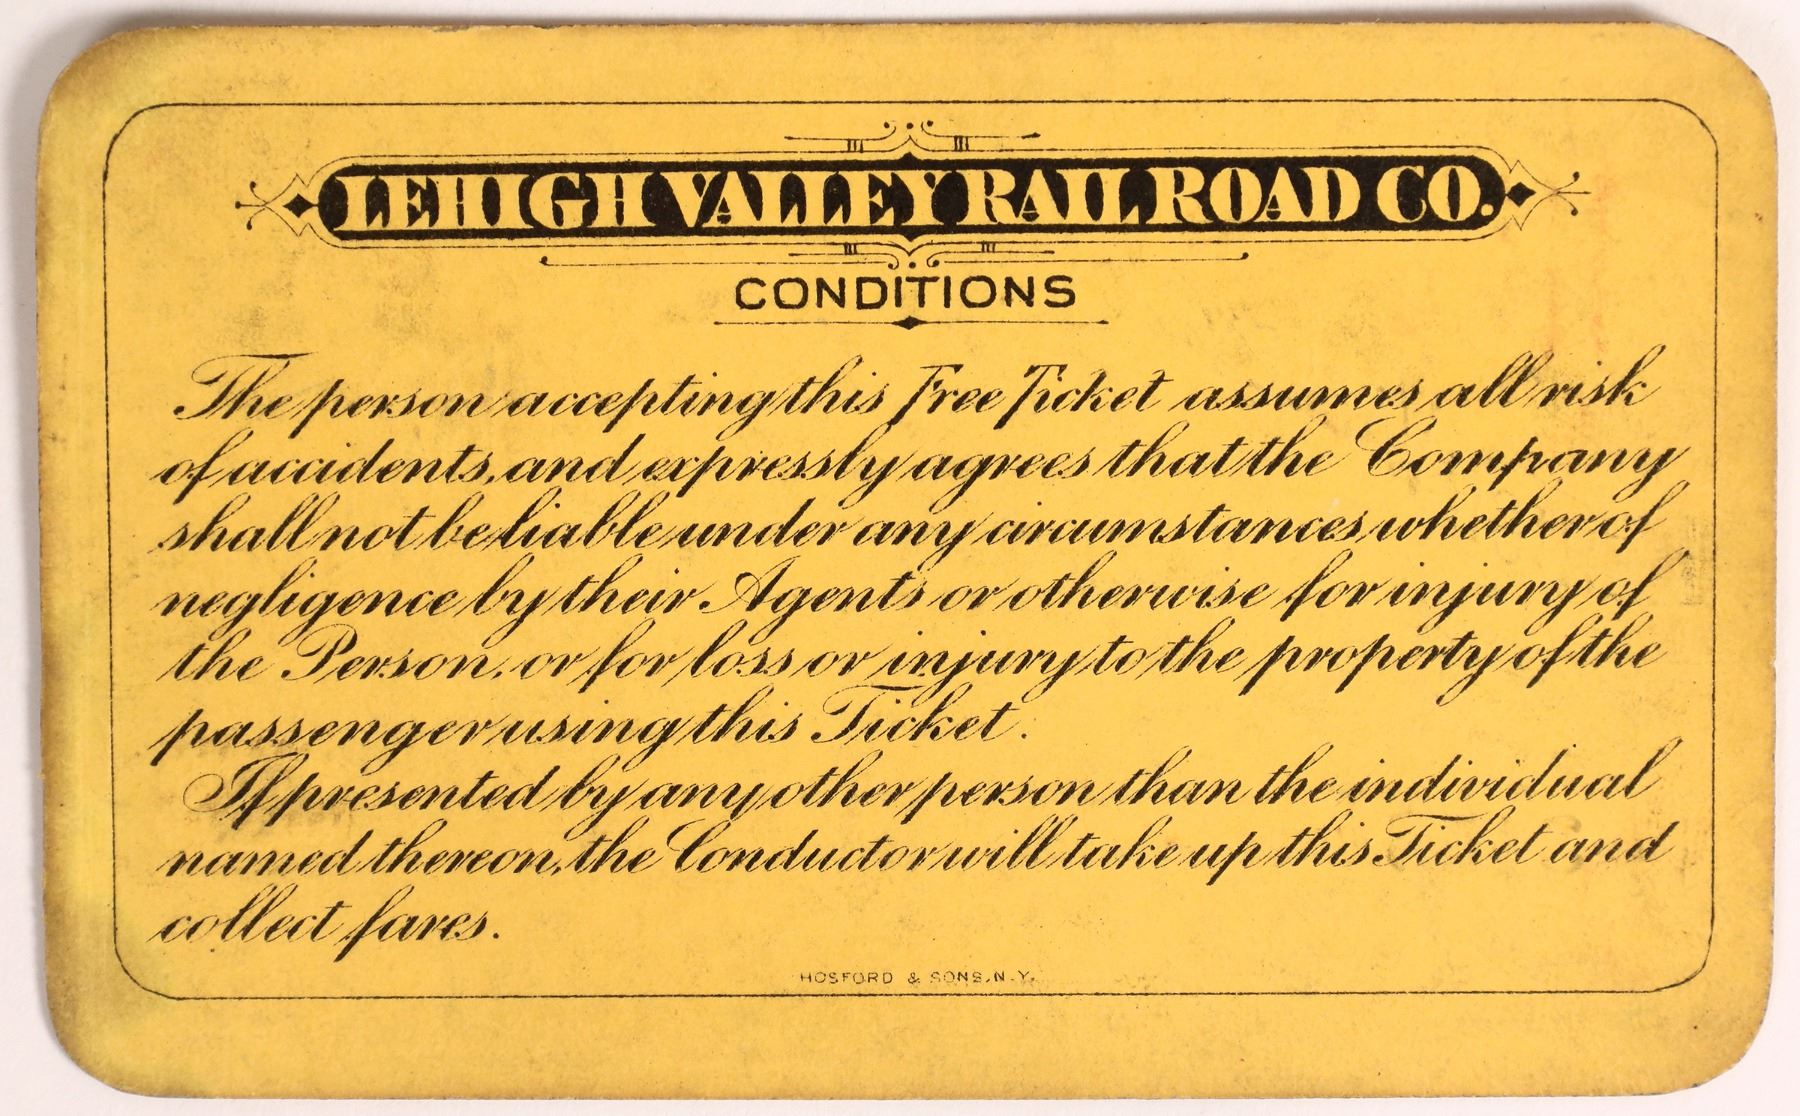 LEHIGH VALLEY RAIL ROAD CO.
CONDITIONS
The person accepting this Free Ticket assumes all risk
of accidents, and expressly agrees that the Company
shall not be liable under any circumstances whether of
negligence by their Agents or otherwise for injury of
the Person, or for loss or injury to the property of the
passenger using this Ticket.
If presented by any other person than the individual
named thereon, the Conductor will take up this Ticket and
collect fares.
HOSFORD & SONS, N.Y.